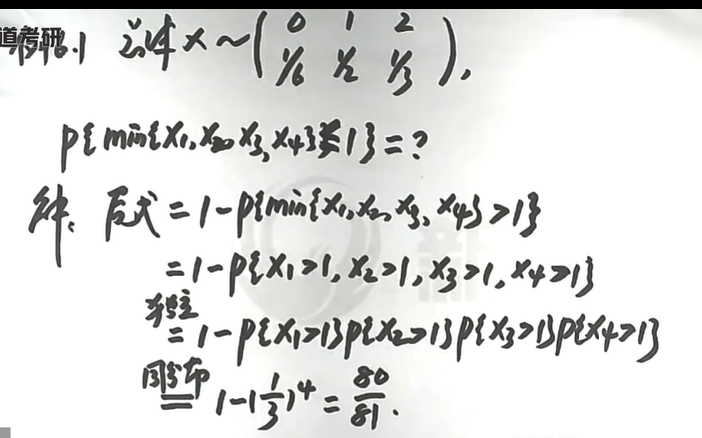 道考研
例6.1 总体X~(0 1 2
1/6 1/2 1/3),
P{min{X₁,X₂,X₃,X₄}≤1}=?
解: 原式=1-P{min{X₁,X₂,X₃,X₄}>1}
=1-P{X₁>1,X₂>1,X₃>1,X₄>1}
独立
=1-P{X₁>1}P{X₂>1}P{X₃>1}P{X₄>1}
同分布
= 1-(1/3)⁴=80/81.